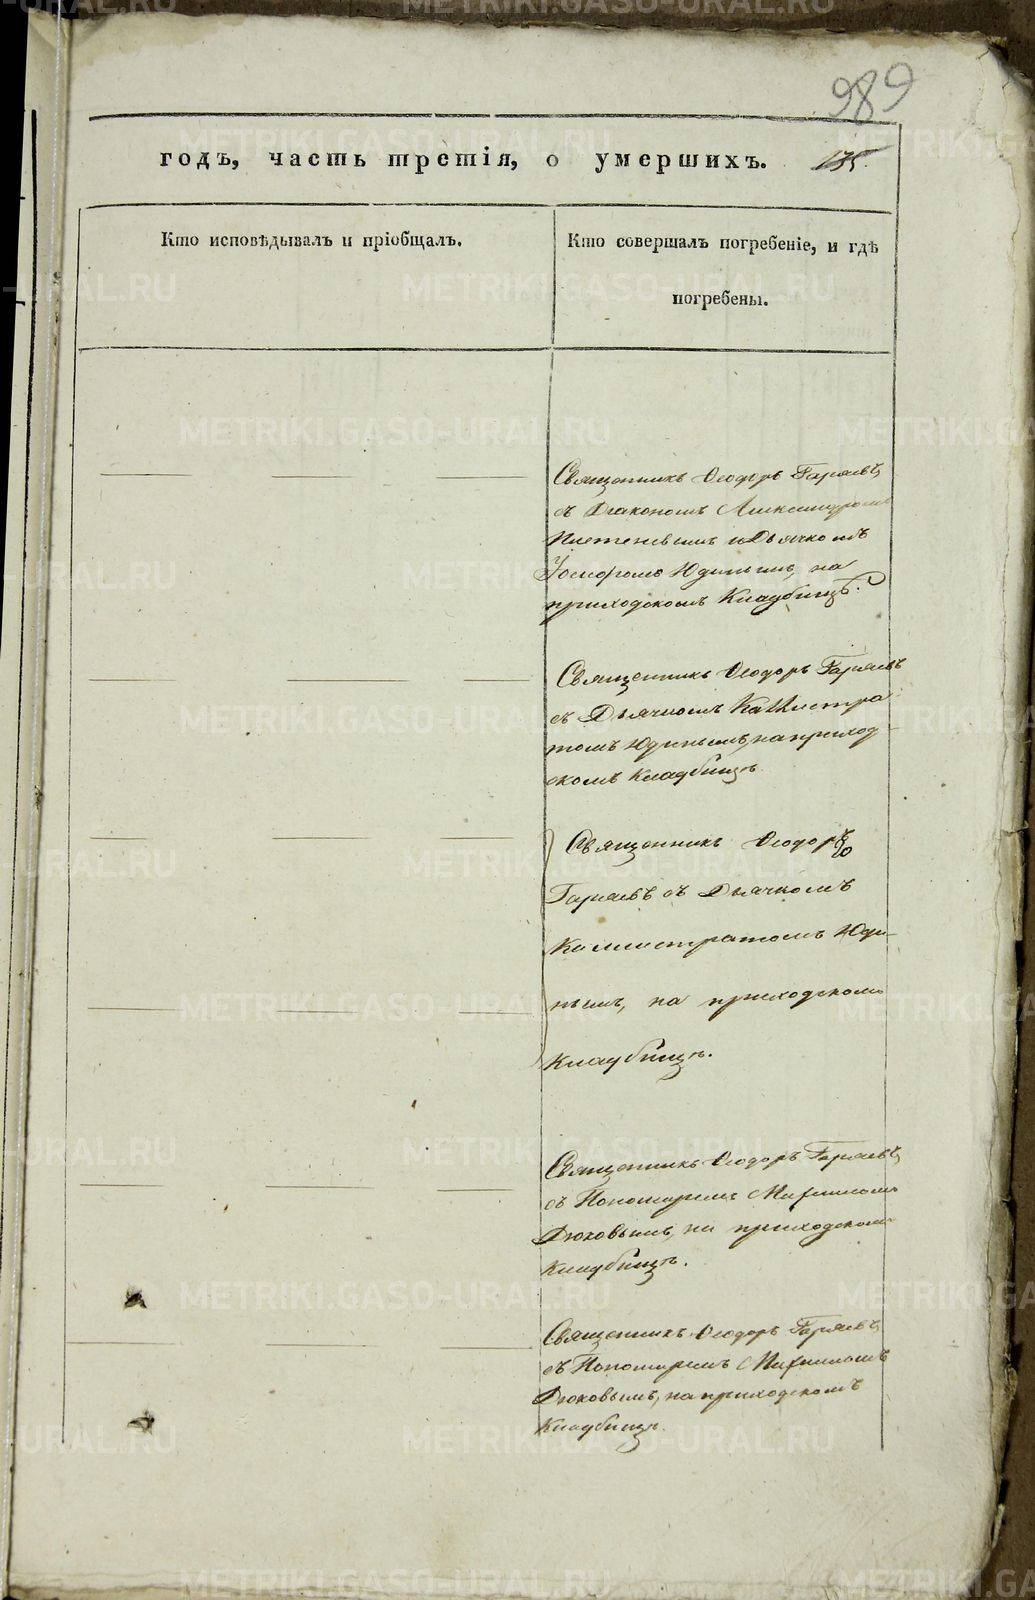 989
годъ, часть третія, о умершихъ. 135.
Кто исповѣдывалъ и пріобщалъ.
Кто совершалъ погребеніе, и гдѣ
погребены.
Священникъ Ѳеодоръ Гаряевъ
съ Діакономъ Александромъ
и Дьячкомъ
Юдинымъ, на
приходскомъ Кладбищѣ.
Священникъ Ѳеодоръ Гаряевъ
съ Дьячкомъ Каллистра
томъ Юдинымъ, на приход-
скомъ Кладбищѣ
Священникъ Ѳеодоръ
Гаряевъ съ Дьячкомъ
Каллистратомъ Юди-
нымъ, на приходскомъ
Кладбищѣ.
Священникъ Ѳеодоръ Гаряевъ
съ Пономаремъ Михаиломъ
Дюковымъ, на приходскомъ
Кладбищѣ.
Священникъ Ѳеодоръ Гаряевъ
съ Пономаремъ Михаиломъ
Дюковымъ, на приходскомъ
Кладбищѣ.
METRIKI.GASO-URAL.RU